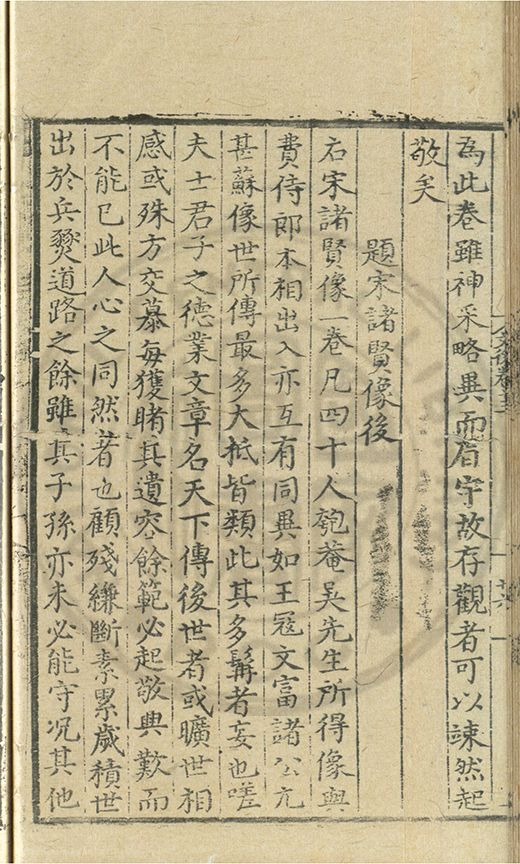 為此卷雖神采略異而眉宇故存觀者可以竦然起
敬矣
題宋諸賢像後
右宋諸賢像一卷凡四十人匏菴吳先生所得像與
費侍郎本相出入亦互有同異如王冦文富諸公尤
甚蘇像世所傳最多大抵皆類此其多髯者妄也嗟
夫士君子之德業文章名天下傳後世者或曠世相
感或殊方交慕每獲睹其遺容餘範必起敬興歎而
不能已此人心之同然者也顧殘縑斷素累歲積世
出於兵燹道路之餘雖其子孫亦未必能守况其他